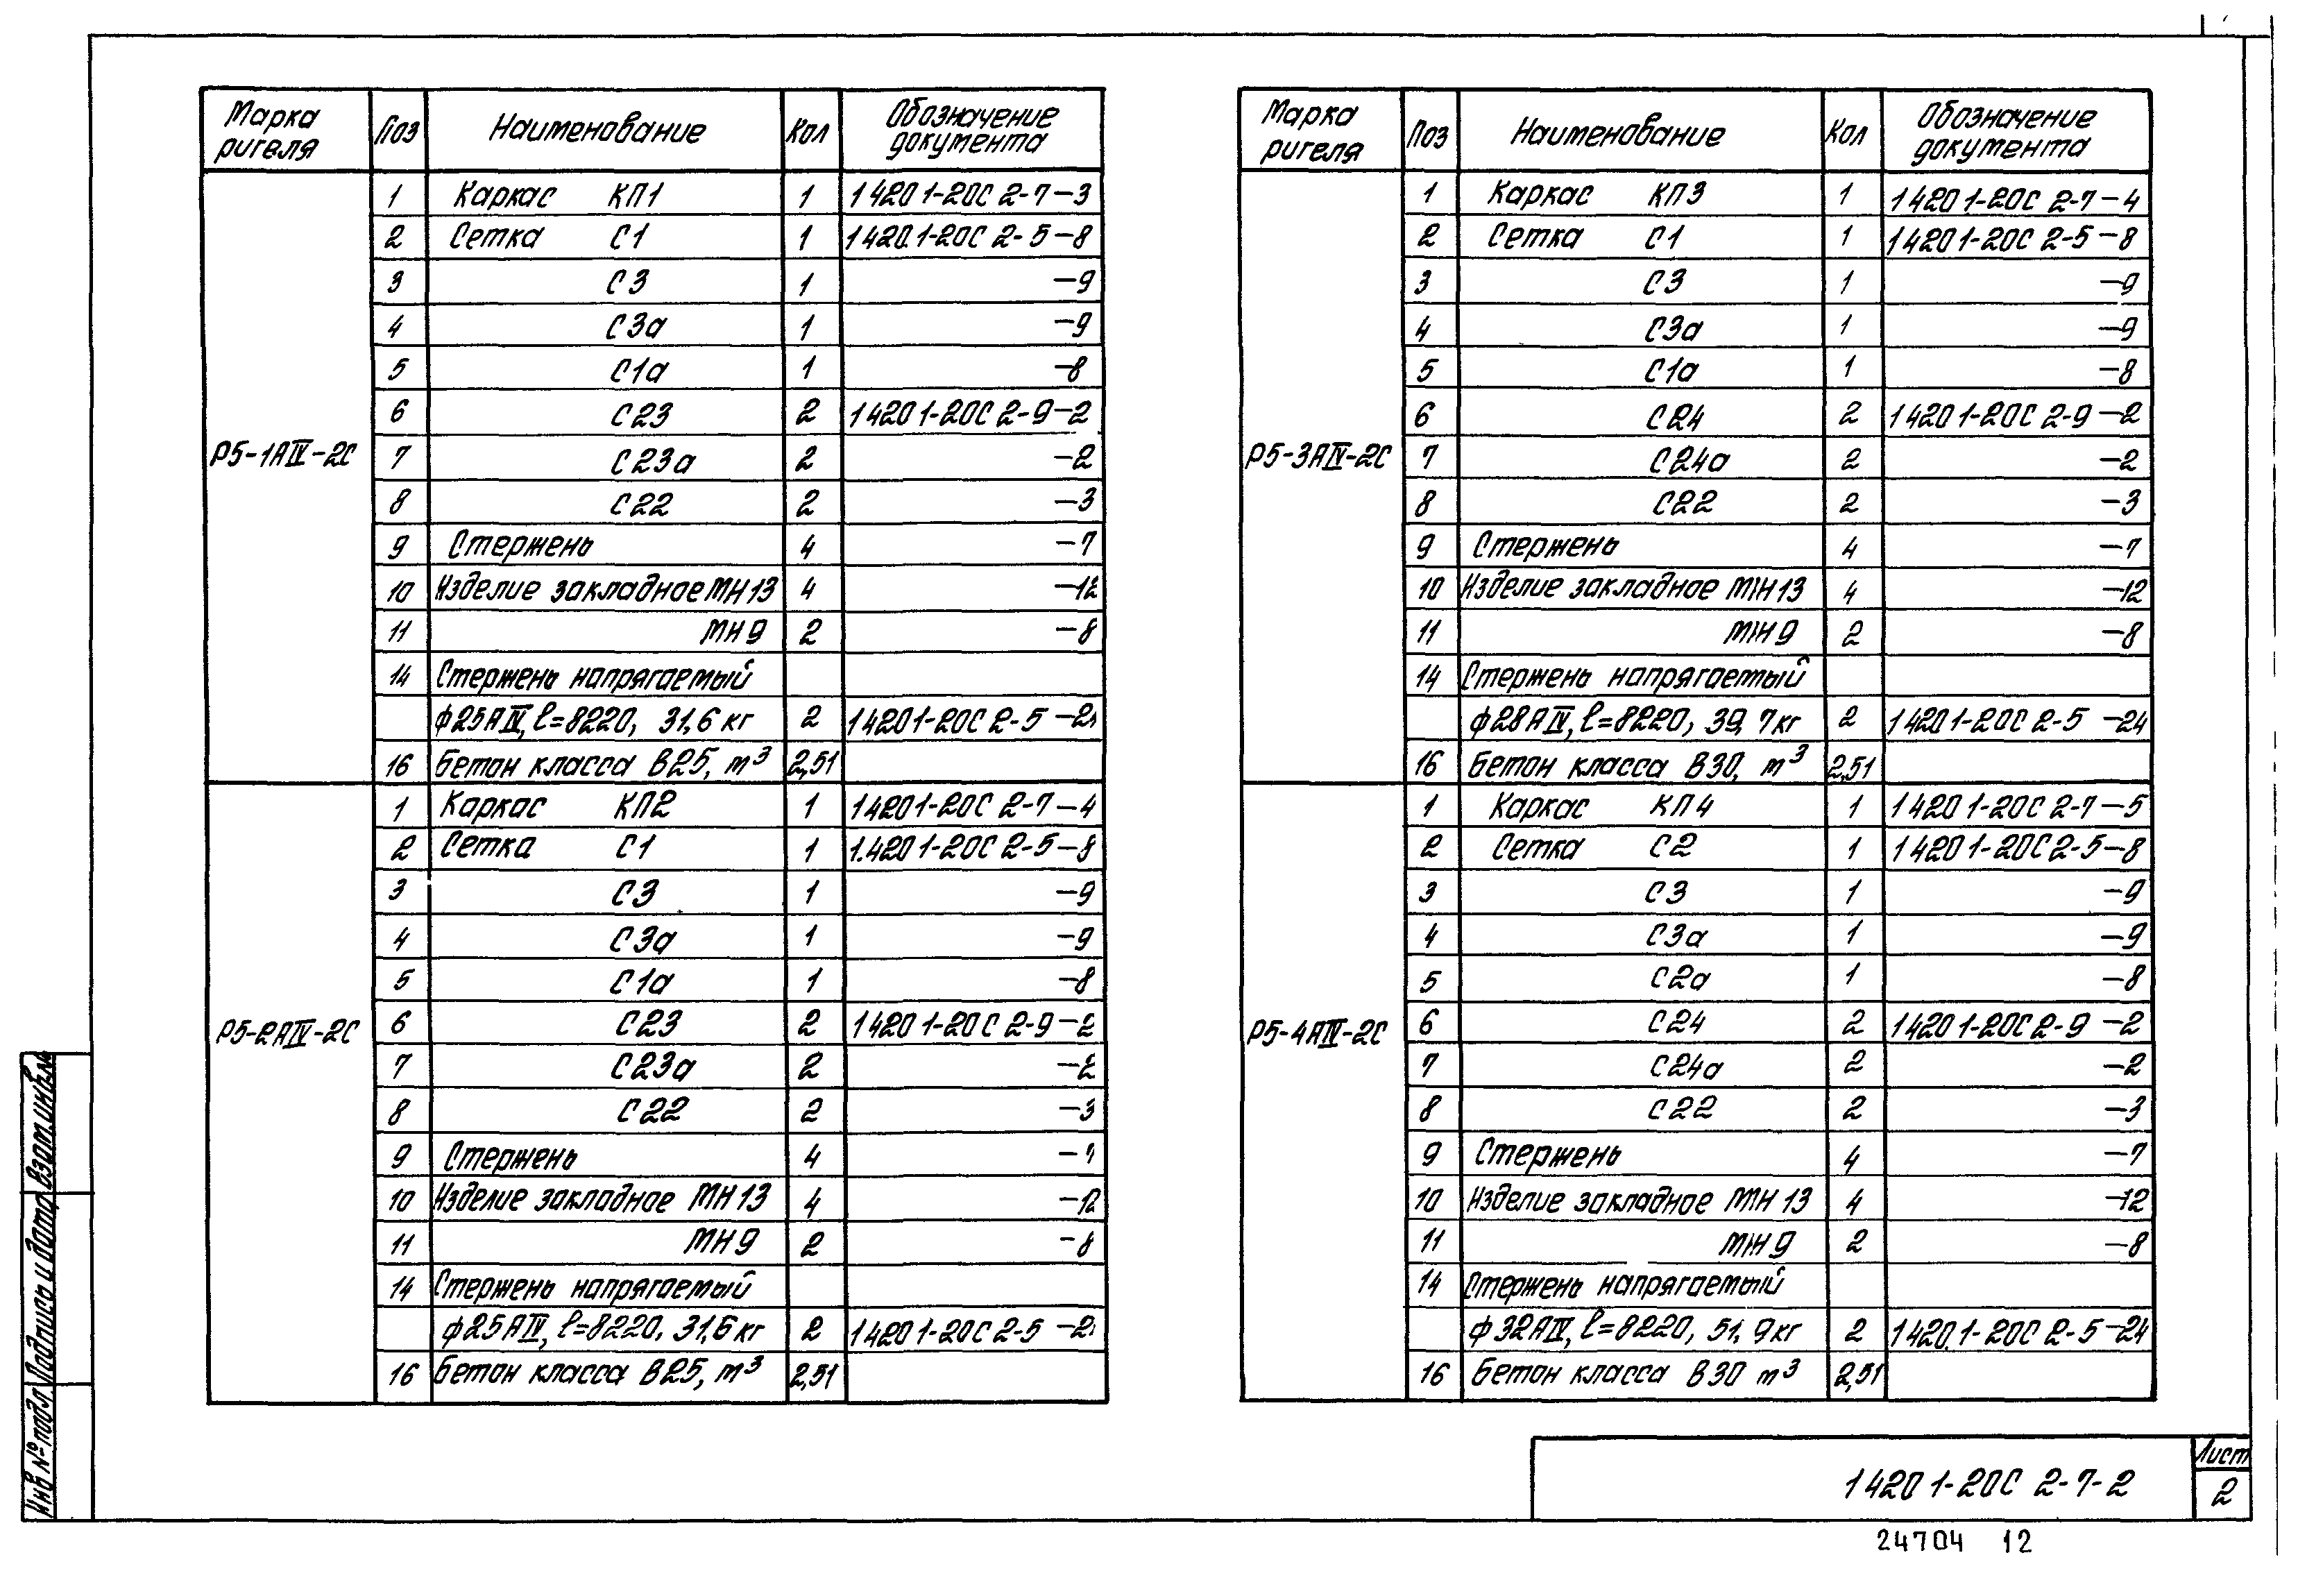 Марка ригеля | Поз | Наименование | Кол | Обозначение документа
Р5-1АIV-2С | 1 | Каркас КП1 | 1 | 1 420 1-20С 2-7-3
2 | Сетка С1 | 1 | 1 420.1-20С 2-5-8
3 | С3 | 1 | -9
4 | С3а | 1 | -9
5 | С1а | 1 | -8
6 | С23 | 2 | 1 420 1-20С 2-9-2
7 | С23а | 2 | -2
8 | С22 | 2 | -3
9 | Стержень | 4 | -7
10 | Изделие закладное МН13 | 4 | -12
11 | МН9 | 2 | -8
14 | Стержень напрягаемый
ф25АIV, ℓ=8220, 31,6 кг | 2 | 1 420 1-20С 2-5
16 | Бетон класса В25, м³ | 2,51
Р5-2АIV-2С | 1 | Каркас КП2 | 1 | 1 420 1-20С 2-7-4
2 | Сетка С1 | 1 | 1.420 1-20С 2-5-8
3 | С3 | 1 | -9
4 | С3а | 1 | -9
5 | С1а | 1 | -8
6 | С23 | 2 | 1 420 1-20С 2-9-2
7 | С23а | 2 | -2
8 | С22 | 2 | -3
9 | Стержень | 4 | -7
10 | Изделие закладное МН13 | 4 | -12
11 | МН9 | 2 | -8
14 | Стержень напрягаемый
ф25АIV, ℓ=8220, 31,6 кг | 2 | 1 420 1-20С 2-5
16 | Бетон класса В25, м³ | 2,51
Марка ригеля | Поз | Наименование | Кол | Обозначение документа
Р5-3АIV-2С | 1 | Каркас КП3 | 1 | 1 420 1-20С 2-7-4
2 | Сетка С1 | 1 | 1 420 1-20С 2-5-8
3 | С3 | 1 | -9
4 | С3а | 1 | -9
5 | С1а | 1 | -8
6 | С24 | 2 | 1 420 1-20С 2-9-2
7 | С24а | 2 | -2
8 | С22 | 2 | -3
9 | Стержень | 4 | -7
10 | Изделие закладное МН13 | 4 | -12
11 | МН9 | 2 | -8
14 | Стержень напрягаемый
ф28АIV, ℓ=8220, 39,7 кг | 2 | 1 420 1-20С 2-5-24
16 | Бетон класса В30, м³ | 2,51
Р5-4АIV-2С | 1 | Каркас КП4 | 1 | 1 420 1-20С 2-7-5
2 | Сетка С2 | 1 | 1 420 1-20С 2-5-8
3 | С3 | 1 | -9
4 | С3а | 1 | -9
5 | С2а | 1 | -8
6 | С24 | 2 | 1 420 1-20С 2-9-2
7 | С24а | 2 | -2
8 | С22 | 2 | -3
9 | Стержень | 4 | -7
10 | Изделие закладное МН13 | 4 | -12
11 | МН9 | 2 | -8
14 | Стержень напрягаемый
ф32АIV, ℓ=8220, 51,9 кг | 2 | 1 420.1-20С 2-5-24
16 | Бетон класса В30 м³ | 2,51
Инв № подл Подпись и дата Взам.инв.№
1 420 1-20С 2-7-2
Лист
2
24704 12